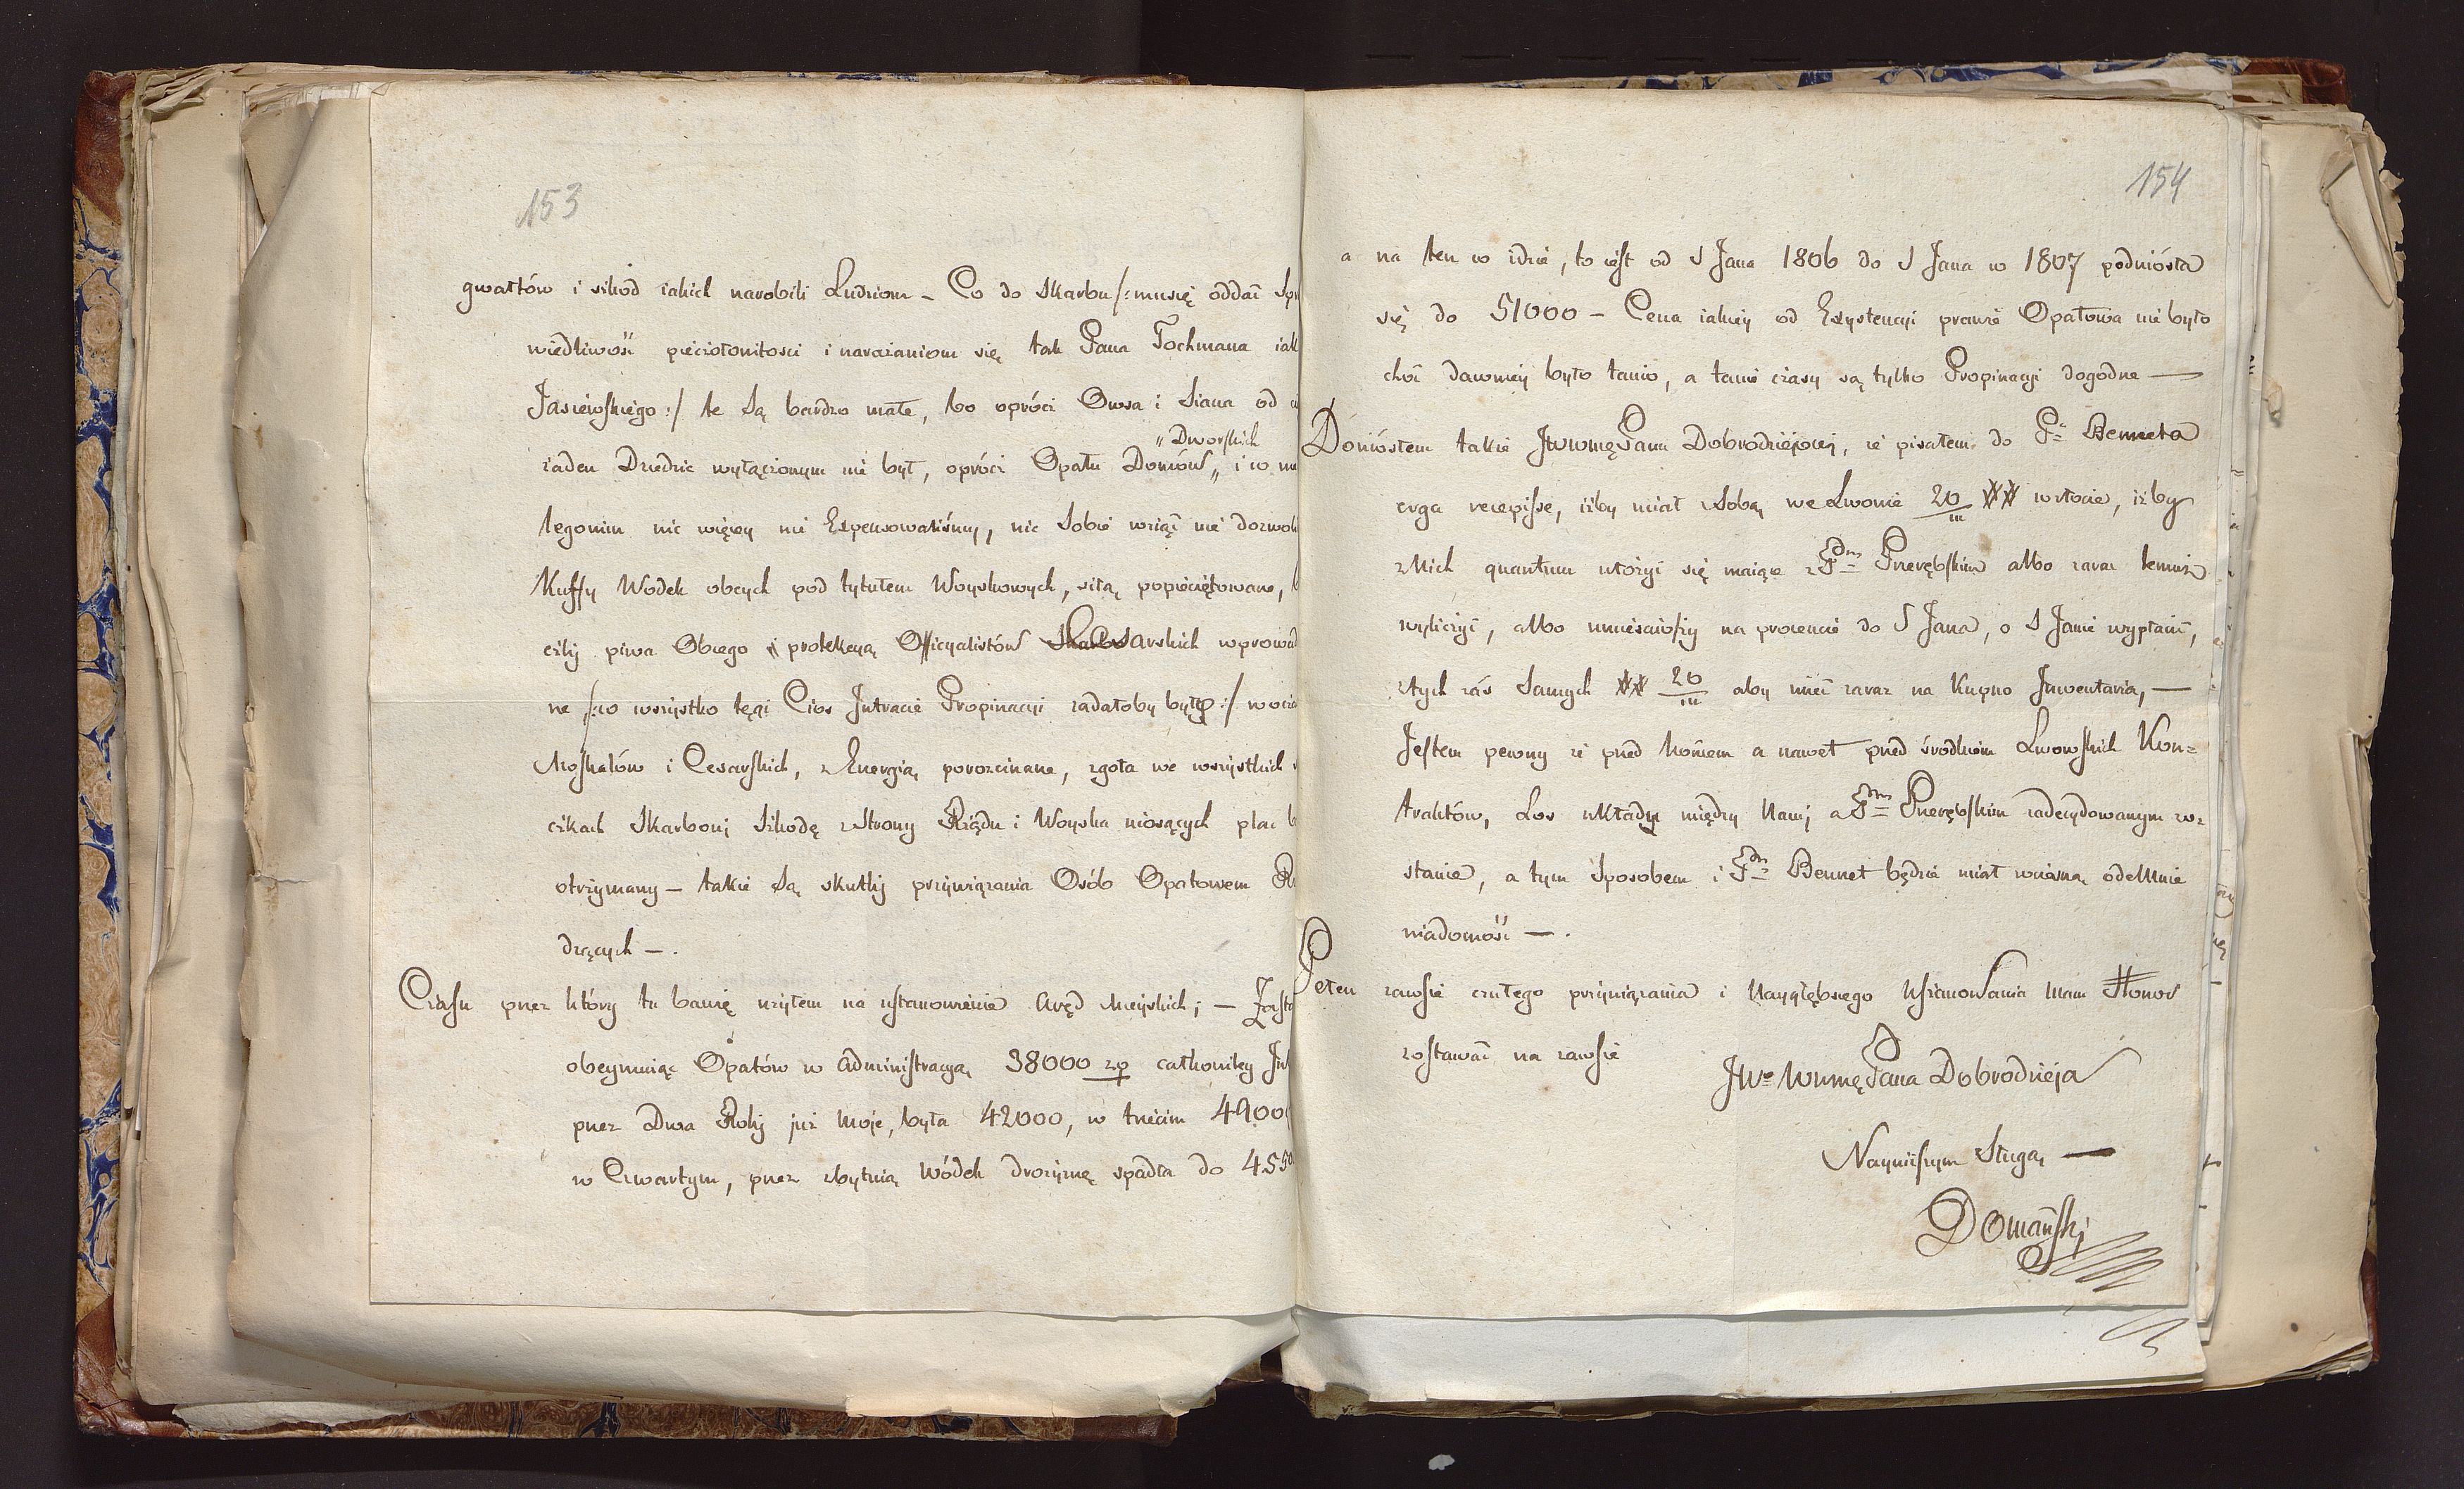 153
gwałtów i szkód iakich narobili Ludziom – Co do Skarbu /: muszę oddać Spr
wiedliwość pieczołowitosci i narażaniom się, tak Pana Tochmana iak
Jasieńskiego :/ te Są bardzo małe, bo oprócz Owsa i Siana od
„Dworskich
żaden Dziedzic wyłączonym nie był, oprócz Opału Domów „ i w
legomin nic więcey nie Expensowaliśmy, nic Sobie wziąć nie dozwol
Kuffy Wodek obcych pod tytułem Woyskowych, są popieczętowane,
czyly piwa Obcego protekcyą Officyalistów Cesarskich wprowad
ne /: co wszystko tęgi Cios Intracie Propinacyi zadałoby było :/ w
Moskalów i Cesarskich, z Energią, porozcinane, zgoła we wszystkich
czkach Skarbowi Szkodę z Strony Rządu i Woyska niosących plac
otrzymany – takie Są skutki przywiązania Osób Opatowem Rz
dzących – .
Czasu przez który tu bawię użyłem na ustanowienie Aręd Meyskich ; –
obeymuiąc Opatów w Administracyą 38000 zp całkowitey
przez Dwa Roky już Moje, była 42000, w trzecim 4900
w Czwartym, przez zbytnią Wódek drożyznę spadła do 455
154
a na ten w idzie, to iest od S Jana 1806 do S Jana w 1807 podniosła
się do 51000 – Cena iakiey od Exystencyi prawie Opatowa nie było
choć dawniey było tanio, a tanie czasy są tylko Propinacyi dogodne —
Doniosłem także JWWmęPanu Dobrodziejowi, że pisałem do Pa Benneta
erga recepisse, iżby miał z Sobą we Lwowie 20/m ## w złocie, iżby
z Nich quantum ułożyć się maiące z Pnem Przerębskim albo zaraz temuż
wyliczyć, albo umieściwszy na procencie do S Jana, o S Janie wypłacić,
z tych zaś Samych ## 20/m aby mieć zaraz na Kupno Inwentaria, —
Jestem pewny że przed końcem a nawet przed środkiem Lwowskich Kon=
traktów, Los układu między Nami a Pnem Przerębskim zadecydowanym zo=
stanie, a tym Sposobem i Pan Bennet będzie miał wczesną odeMnie
wiadomość — .
Pełen zawsze czułego przywiązania i Naygłębszego Uszanowania Mam Honor
zostawać na zawsze
JWo WwmęPana Dobrodzieja
Nayniższym Sługą —
Domański